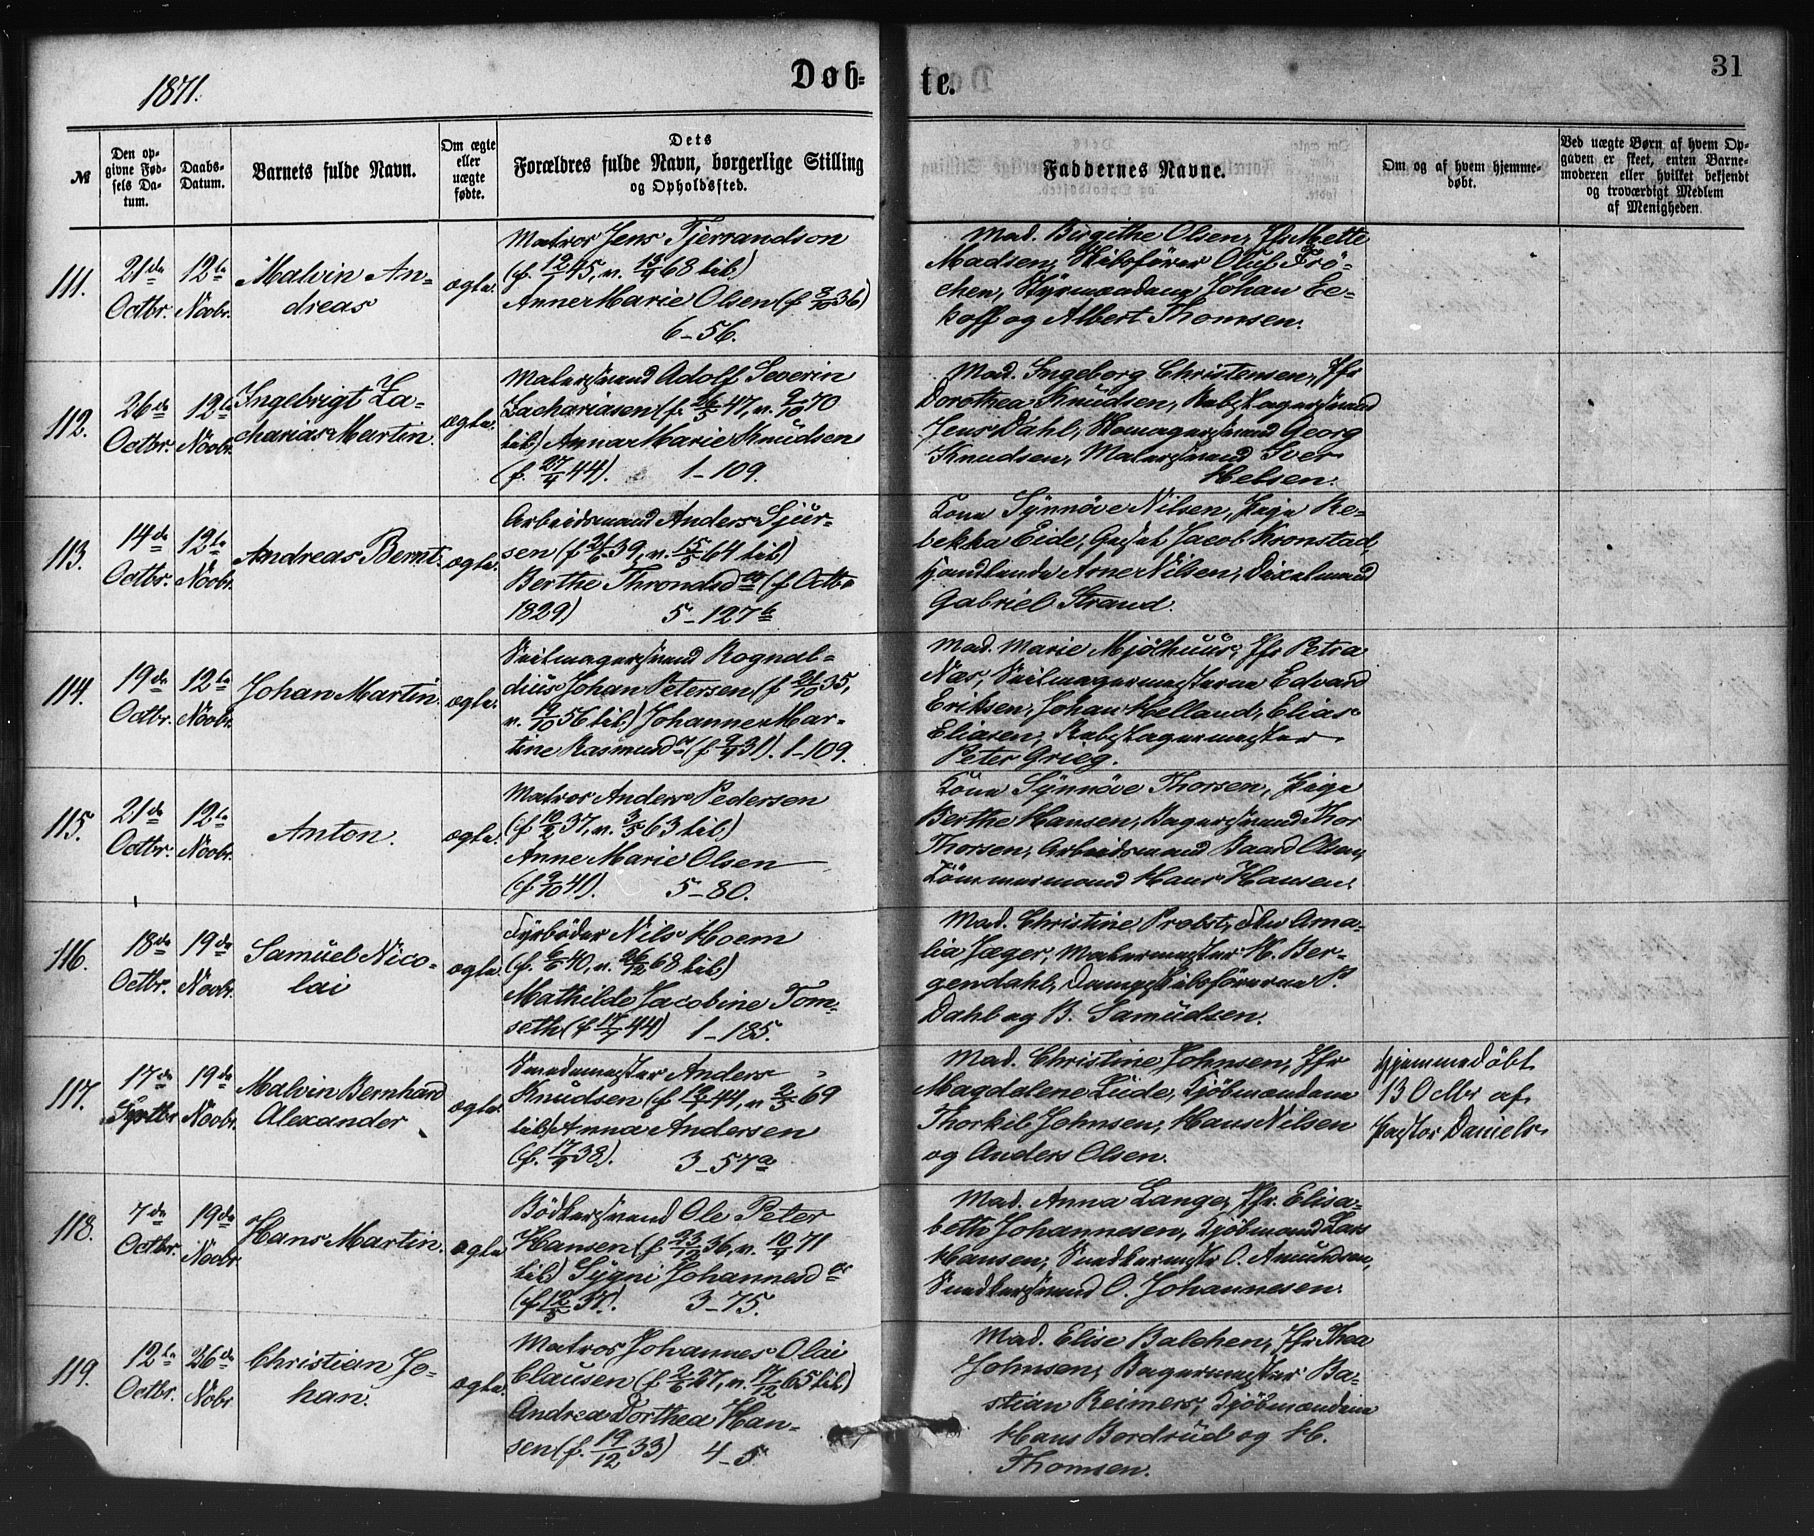 1871.
Døb-
te.
31
№
Den op-
givne Fød-
sels Da-
tum.
Daabs-
Datum.
Barnets fulde Navn.
Om ægte
eller
uægte
fødte.
Dets
Forældres fulde Navn, borgerlige Stilling
og Opholdssted.
Faddernes Navne.
Om og af hvem hjemme-
døbt.
Ved uægte Børn af hvem Op-
gaven er skeet, enten Barne-
moderen eller hvilket bekjendt
og troværdigt Medlem
af Menigheden.
111.
21de
Octbr.
12te
Novbr.
Malvin An-
dreas
ægte.
Matros Jens Tjerrandson
(f. 12/1 45, v. 19/4 68 til)
Anne Marie Olsen (f 3/10 36)
6-56.
Mad. Birgithe Olsen, Jfr Mette
Madsen, Skibsfører Oluf Frö-
chen, Styrmændene Johan Ee-
hoff og Albert Thomsen.
112.
26de
Octbr.
12te
Novbr.
Ingebrigt Za-
charias Martin.
ægte.
Malersvend Adolf Severin
Zachariasen (f. 26/5 47, v. 9/10 70
til) Anna Marie Knudsen
(f. 27/4 44). 1-109.
Mad. Ingeborg Christensen, Jfr
Dorothea Knudsen, Rebslagersvend
Jens Dahl, Skomagersvend Georg
Knudsen, Malersvend Iver
Helsen.
113.
14de
Octbr.
12te
Novbr.
Andreas Bernt.
ægte.
Arbeidsmand Anders Sjur-
sen (f 21/6 39, v. 15/5 64 til)
Berthe Thronsdr (f Octbr
1829) 5-127b
Kone Synnöve Nilsen, Pige Re-
bekka Eide, Gaset Jacob Kronstad,
Handlende Arne Nilsen, Dixelmand
Gabriel Strand.
114.
19de
Octbr.
12te
Novbr.
Johan Martin.
ægte.
Seilmagersvend Rognal-
dius Johan Petersen (f 21/10 35,
v. 19/10 56 til) Johanne Mar-
tine Rasmusdr (f 9/4 31). 1-109.
Mad. Marie Mjölhuus, Jfr Petra
Næs, Seilmagermesterne Edvard
Eriksen, Johan Helland, Elias
Eliasen, Rebslagermester
Peter Grieg.
115.
21de
Octbr.
12te
Novbr.
Anton.
ægte.
Matros Anders Pedersen
(f 10/2 37, v. 3/5 63 til)
Anne Marie Olsen
(f. 9/10 41). 5-80.
Kone Synnöve Thorsen, Pige
Berthe Hansen, Bagersvend Thor
Thorsen, Arbeidsmand Baard Olsen,
Tömmermand Hans Hansen.
116.
18de
Octbr.
19de
Novbr.
Samuel Nico-
lai
ægte.
Fyrböder Nils Hoem
(f. 6/6 40, v. 26/12 68 til)
Mathilde Jacobine Tom-
seth (f 17/7 44) 1-185.
Mad. Christine Probst, Frk Ama-
lia Jæger, Malermester H. Ber-
gendahl, Dampskibsförerne P.
Dahl og B. Samudsen.
117.
17de
Septbr
19de
Novbr.
Malvin Bernhard
Alexander
ægte
Smedemester Anders
Knudsen (f 19/1 44, v 2/5 69
til) Anna Andersen
(f. 17/9 38). 3-57a
Mad. Christine Johnsen, Jfr
Magdalene Lude, Kjöbmændene
Thorkil Johnsen, Hans Nilsen
og Anders Olsen.
Hjemmedöbt
13 Octbr af
Pastor Daniels.
118.
7de
Octbr.
19de
Novbr
Hans Martin.
ægte
Bödkersvend Ole Peter
Hansen (f 23/12 36, v. 10/4 71
til) Sygni Johannesdr
(f 12/5 37). 3-75.
Mad. Anna Lange, Jfr. Elisa-
beth Johannesen, Kjöbmand Lars
Hansen, Snedkermestr O. Amundsen,
Snedkersvend O. Johannesen.
119.
12te
Octbr.
26de
Nobr
Christian Jo-
han.
ægte.
Matros Johannes Olai
Clausen (f 2/6 27, v. 17/12 65 til)
Andrea Dorthea Han-
sen (f. 19/12 33) 4-5.
Mad. Elise Balchen, Jfr Thea
Johnsen, Bagermester Ba-
stian Reimers, Kjöbmændene
Hans Bordrud og H.
Thomsen.